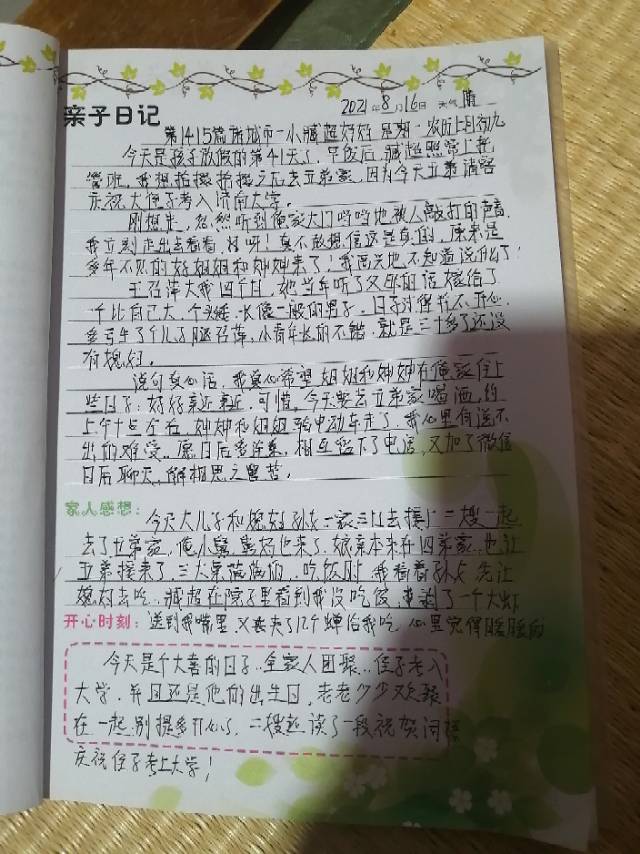 亲子日记
2021年8月16日 天气 晴
第1415篇 诸城市一小臧超妈妈 星期一 农历七月初九
今天是孩子放假的第41天了，早饭后，臧超照常上托
管班，我想拾掇拾掇之后去五弟家，因为今天五弟请客
庆祝大侄子考入济南大学。
刚想走，忽然听到俺家大门呜呜地被人敲打的声音，
我立刻走出去看看，好呀！真不敢相信这是真的，原来是
多年不见的好姐姐和婶婶来了！我高兴地不知道说什么了！
王召萍大我四个月，她当年听了父母的话，嫁给了
一个比自己大，个头矮，长像一般的男子，日子过得并不开心，
多亏生了个儿子，小青年长的不错，就是三十多了还没
有媳妇。
说句良心话，我真心希望姐姐和婶婶在俺家住上
些日子，好好亲近亲近，可惜，今天要去五弟家喝酒，约
上午十点左右，婶婶和姐姐骑电动车走了，我心里有说不
出的难受，愿日后多连系，相互留下了电话，又加了微信
日后聊天，解相思之苦。
家人感想：今天大儿子和媳妇孙女一家三口去接上二嫂一起
去了五弟家，俺小舅舅妈也来了，娘亲本来在四弟家，也让
五弟接来了，三大桌菜做的，吃饭时，我看着孙女先让
媳妇去吃，臧超在院子里看到我没吃饭，拿了一个大虾
开心时刻：送到我嘴里，又夹了几个蝉给我吃，心里觉得暖暖的
今天是个大喜的日子，全家人团聚，侄子考入
大学，并且还是他的出生日，老老少少欢聚
在一起，别提多开心了，二嫂还读了一段祝贺词
庆祝侄子考上大学！